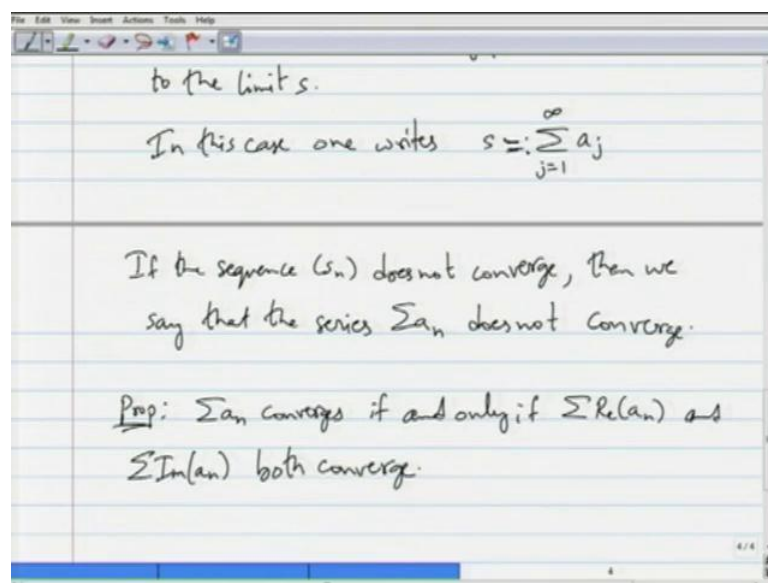 File Edit View Insert Actions Tools Help
to the limit s.
In this case one writes s =: ∞∑j=1 aj
If the sequence (sn) does not converge, then we
say that the series Σan does not converge.
Prop: Σan converges if and only if ΣRe(an) and
ΣIm(an) both converge.
4/4
4